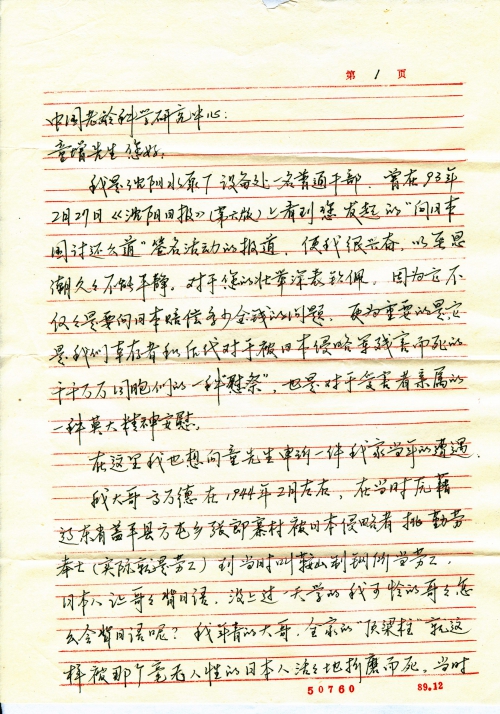 第 1 页
中国老龄科学研究中心:
童增先生您好,
我是沈阳水泵厂设备处一名普通干部,曾在93年
2月27日《沈阳日报》(第六版)上看到您发起的“向日本
国讨还公道”签名活动的报道,使我很兴奋,以至思
潮久久不能平静。对于您的壮举深表钦佩。因为它不
仅仅是要向日本赔偿多少金钱的问题,更为重要的是它
是我们幸存者和后代对于被日本侵略军残害而死的
千千万万同胞们的一种“慰祭”,也是对于受害者亲属的
一种莫大精神安慰。
在这里我也想向童先生申诉一件我家当年的遭遇.
我大哥高万德在1944年2月左右,在当时原籍
辽东省盖平县方屯乡张郎寨村被日本侵略者抓勤劳
奉士(实际就是劳工)到当时叫鞍山制钢所当劳工,
日本人让哥哥背日语,没上过一天学的我可怜的哥哥怎
么会背日语呢?我年青的大哥,全家的“顶梁柱”就这
样被那个毫无人性的日本人活活地折磨而死,当时
50760 89.12